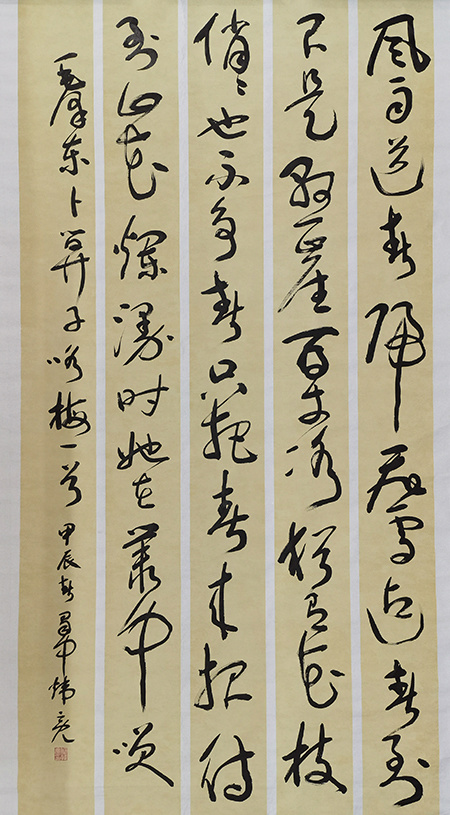 风雨送春归飞雪迎春到
已是悬崖百丈冰犹有花枝
俏〻也不争春只把春来报待
到山花烂漫时她在丛中笑
毛泽东卜算子咏梅一首 甲辰春蜀中炜亮